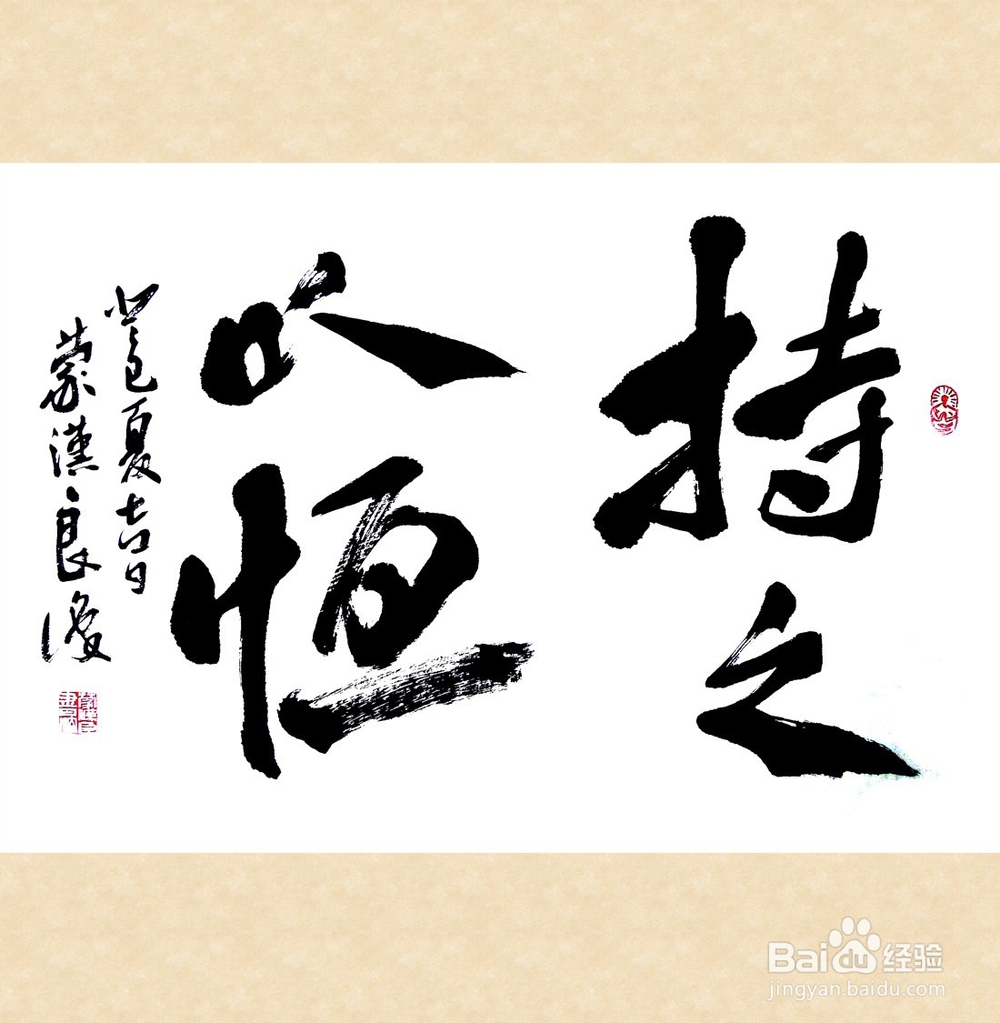 持之
以恒
癸巳夏吉日
蒙漢良
Baidu经验
jingyan.baidu.com